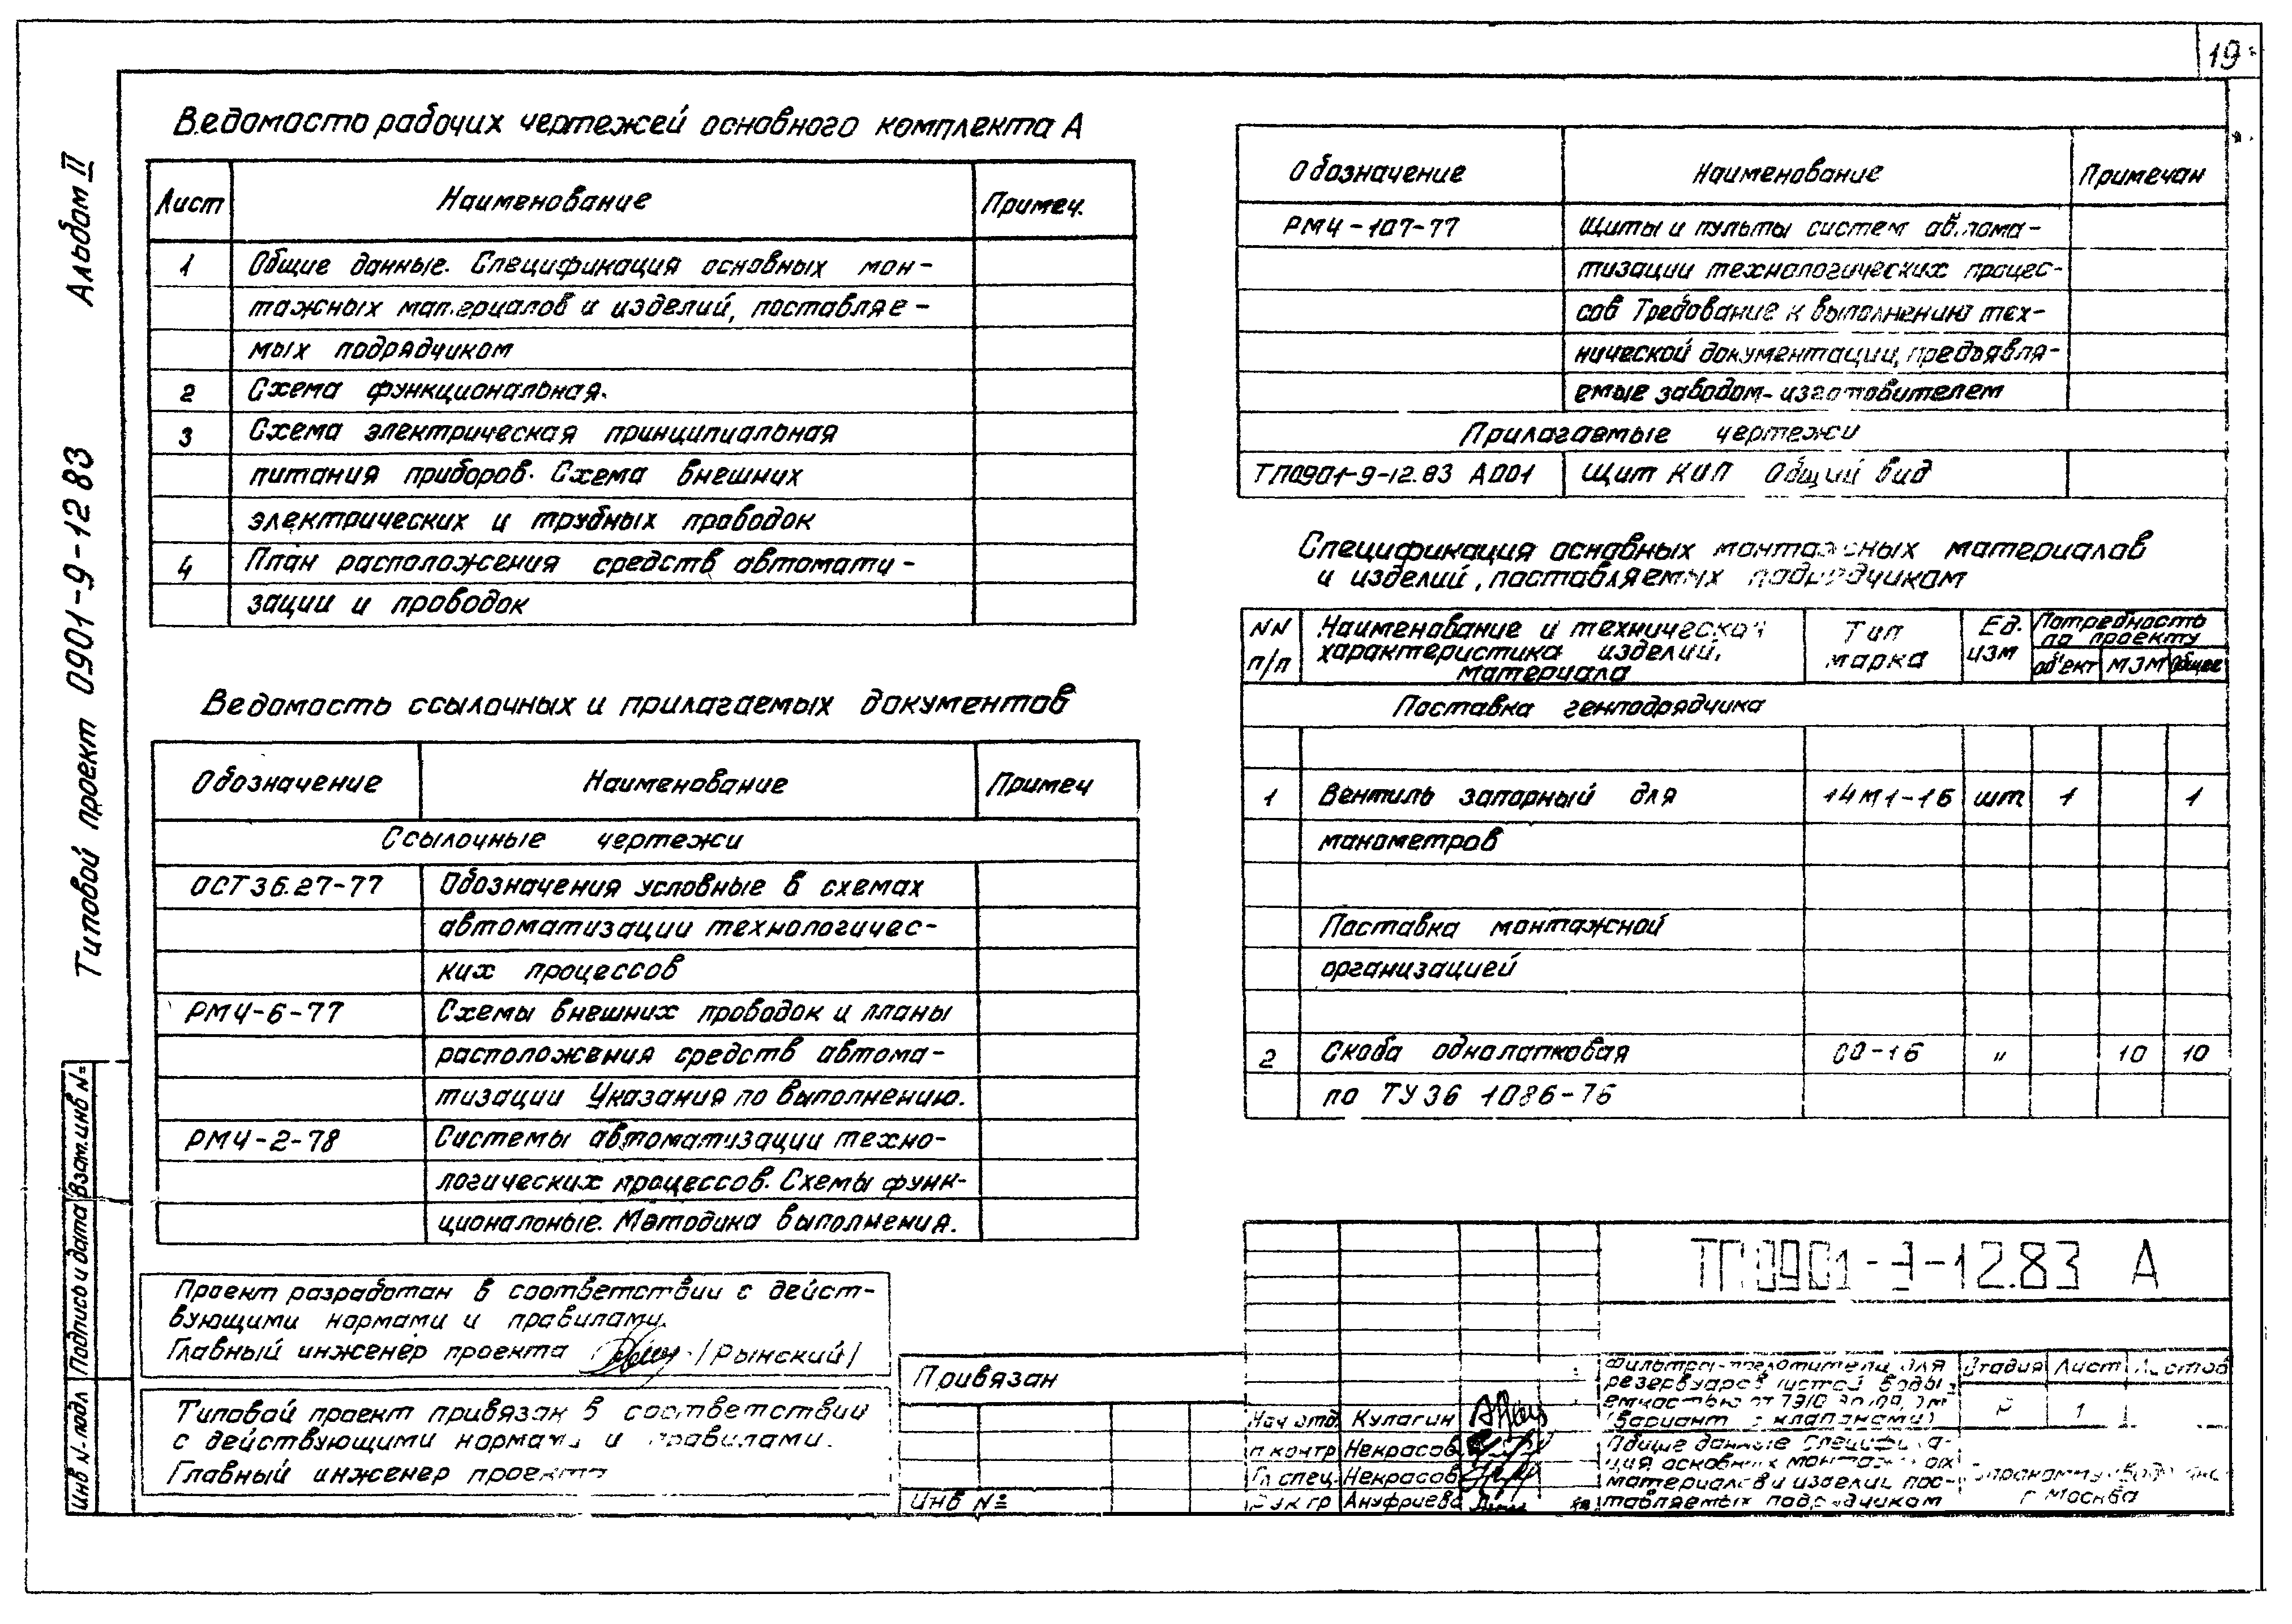 19
Альбом II
Типовой проект 0901-9-12 83
Ведомость рабочих чертежей основного комплекта А
Лист Наименование Примеч.
1 Общие данные. Спецификация основных мон-
тажных материалов и изделий, поставляе-
мых подрядчиком
2 Схема функциональная.
3 Схема электрическая принципиальная
питания приборов. Схема внешних
электрических и трубных проводок
4 План расположения средств автомати-
зации и проводок
Ведомость ссылочных и прилагаемых документов
Обозначение Наименование Примеч
Ссылочные чертежи
ОСТ 36.27-77 Обозначения условные в схемах
автоматизации технологичес-
ких процессов
РМ4-6-77 Схемы внешних проводок и планы
расположения средств автома-
тизации Указания по выполнению.
РМ4-2-78 Системы автоматизации техно-
логических процессов. Схемы функ-
циональные. Методика выполнения.
Проект разработан в соответствии с дейст-
вующими нормами и правилами.
Главный инженер проекта /Рынский/
Типовой проект привязан в соответствии
с действующими нормами и правилами.
Главный инженер проекта
Привязан
Инв №
Обозначение Наименование Примечан
РМ4-107-77 Щиты и пульты систем автома-
тизации технологических процес-
сов Требование к выполнению тех-
нической документации, предъявля-
емые заводом-изготовителем
Прилагаемые чертежи
ТП0901-9-12.83 А001 Щит КИП Общий вид
Спецификация основных монтажных материалов
и изделий, поставляемых подрядчиком
NN п/п Наименование и техническая характеристика изделий, материала Тип марка Ед. изм Потребность по проекту
объект МЭМ Общее
Поставка генподрядчика
1 Вентиль запорный для 14М1-16 шт 1 1
манометров
Поставка монтажной
организацией
2 Скоба однолапковая СО-16 " 10 10
по ТУ36 1086-76
ТП 0901-9-12.83 А
Фильтры-поглотители для
резервуаров чистой воды
(вариант с клапанами)
Стадия Лист Листов
Р 1
Нач отд. Кулагин
Н контр Некрасов
Гл спец. Некрасов
Рук гр Ануфриева
Общие данные Специфика-
ция основных монтажных
материалов и изделий, пос-
тавляемых подрядчиком
г Москва
Взам.инв №
Подпись и дата
Инв № подл